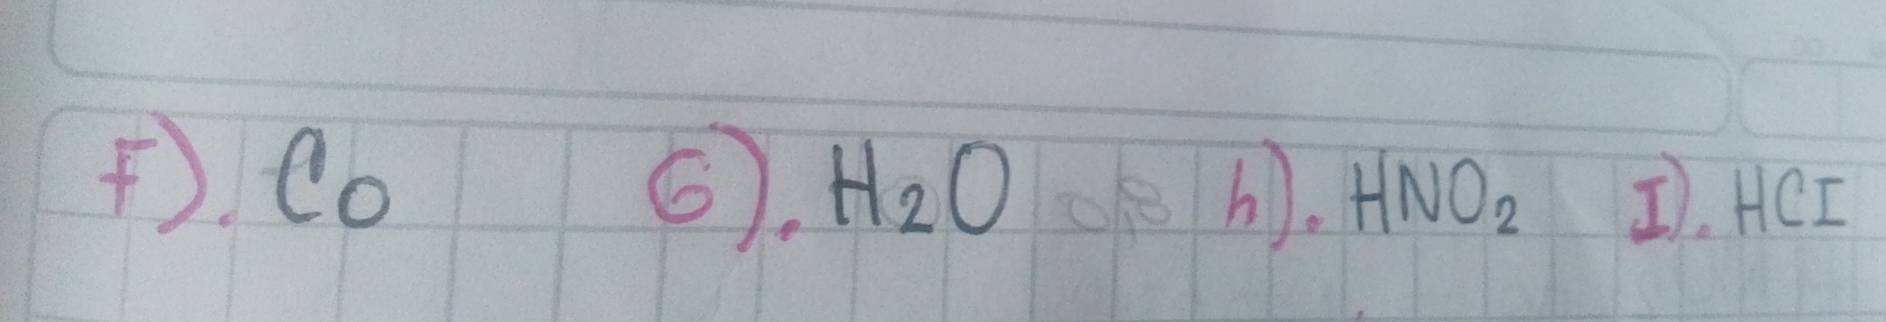 F). Co G). H₂O h). HNO₂ I). HCI